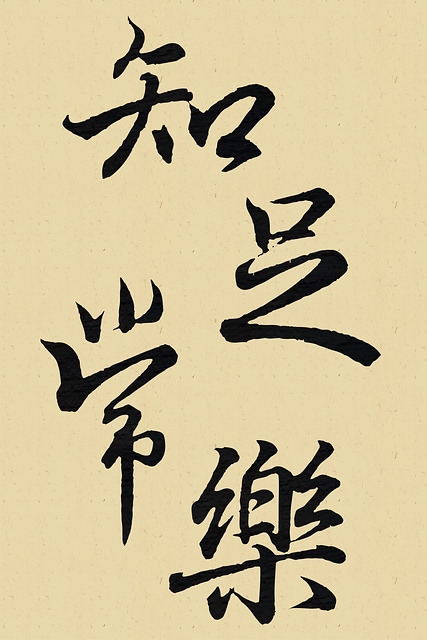 知
足
常
樂